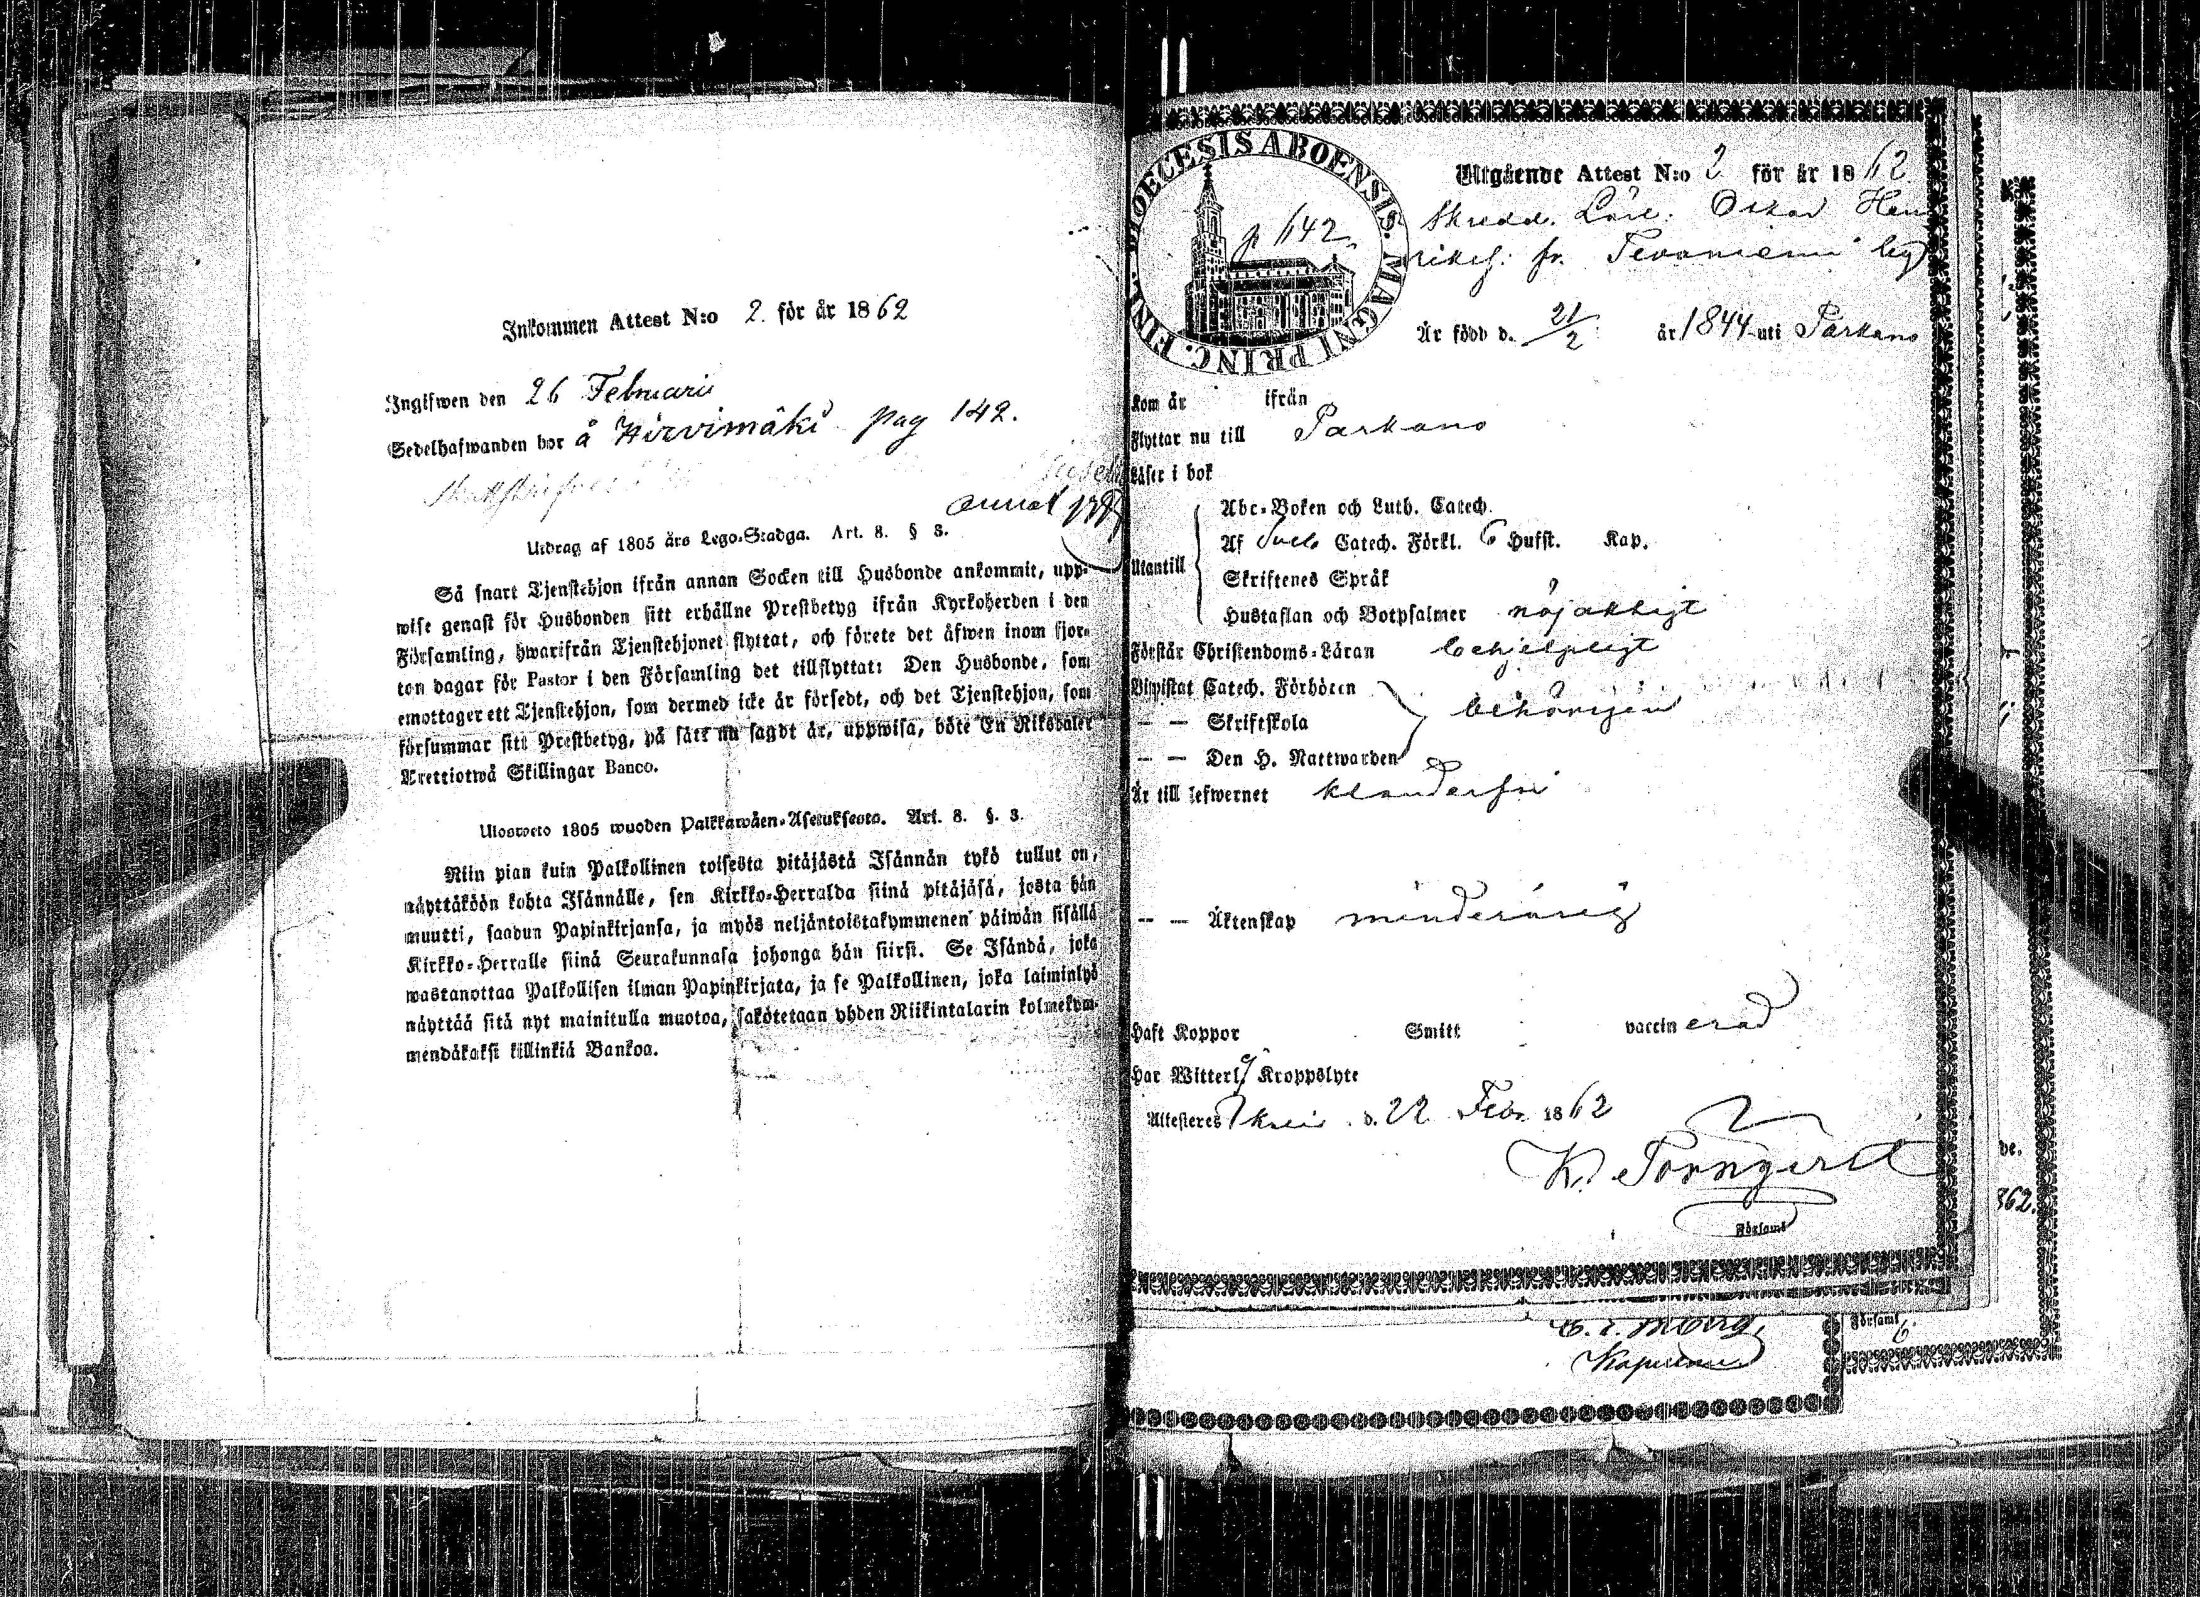 Inkommen Attest N:o 2. för år 1862
Ingifwen den 26 Februarii
Sedelhafwanden bor å Hirvimäki pag 142.
Utdrag af 1805 års Lego-Stadga. Art. 8. § 3.
Så snart Tjenstehjon ifrån annan Socken till Husbonde ankommit, upp-
wise genast för Husbonden sitt erhållne Prestbetyg ifrån Kyrkoherden i den
Församling, hwarifrån Tjenstehjonet flyttat, och förete det äfwen inom fjor-
ton dagar för Pastor i den Församling det tillflyttat: Den Husbonde, som
emottager ett Tjenstehjon, som dermed icke är försedt, och det Tjenstehjon, som
försummar sitt Prestbetyg, på sätt nu sagdt är, uppwisa, böte En Riksdaler
Trettiotwå Skillingar Banco.
Ulosweto 1805 wuoden Palkkawäen-Asetuksesta. Art. 8. §. 3.
Niin pian kuin Palkollinen toisesta pitäjästä Isännän tykö tullut on,
näyttäköön kohta Isännälle, sen Kirkko-Herralda siinä pitäjäsä, josta hän
muutti, saadun Papinkirjansa, ja myös neljäntoistakymmenen päiwän sisällä
Kirkko-Herralle siinä Seurakunnasa johonga hän siirsi. Se Isändä, joka
wastanottaa Palkollisen ilman Papinkirjata, ja se Palkollinen, joka laiminlyö
näyttää sitä nyt mainitulla muotoa, sakotetaan yhden Riikintalarin kolmekym-
mendäkaksi killinkiä Bankoa.
DIOECESIS ABOENSIS. MAGNI PRINC. FINL.
p 142
Utgående Attest N:o 2 för år 1862
Skredd. Lärl. Oskar Hen
riks. fr. Tevaniemi by
Är född d. 21/2 år 1844 uti Parkano
Kom år ifrån
Flyttar nu till Parkano
Läser i bok
Utantill
Abc-Boken och Luth. Catech.
Af Catech. Förkl. 6 Hufst. Kap.
Skriftenes Språk
Hustaflan och Botpsalmer nöjaktigt
Förstår Christendoms-Läran behjelpligt
Biwistat Catech. Förhören
— — Skriftskola behörigen
— — Den H. Nattwarden
Är till lefwernet klanderfri
— — Äktenskap minderårig
Haft Koppor Smitt vaccinerad
Har Witterl. Kroppslyte
Attesteras d. 22 Febr. 1862
Församl
de.
862.
Församl